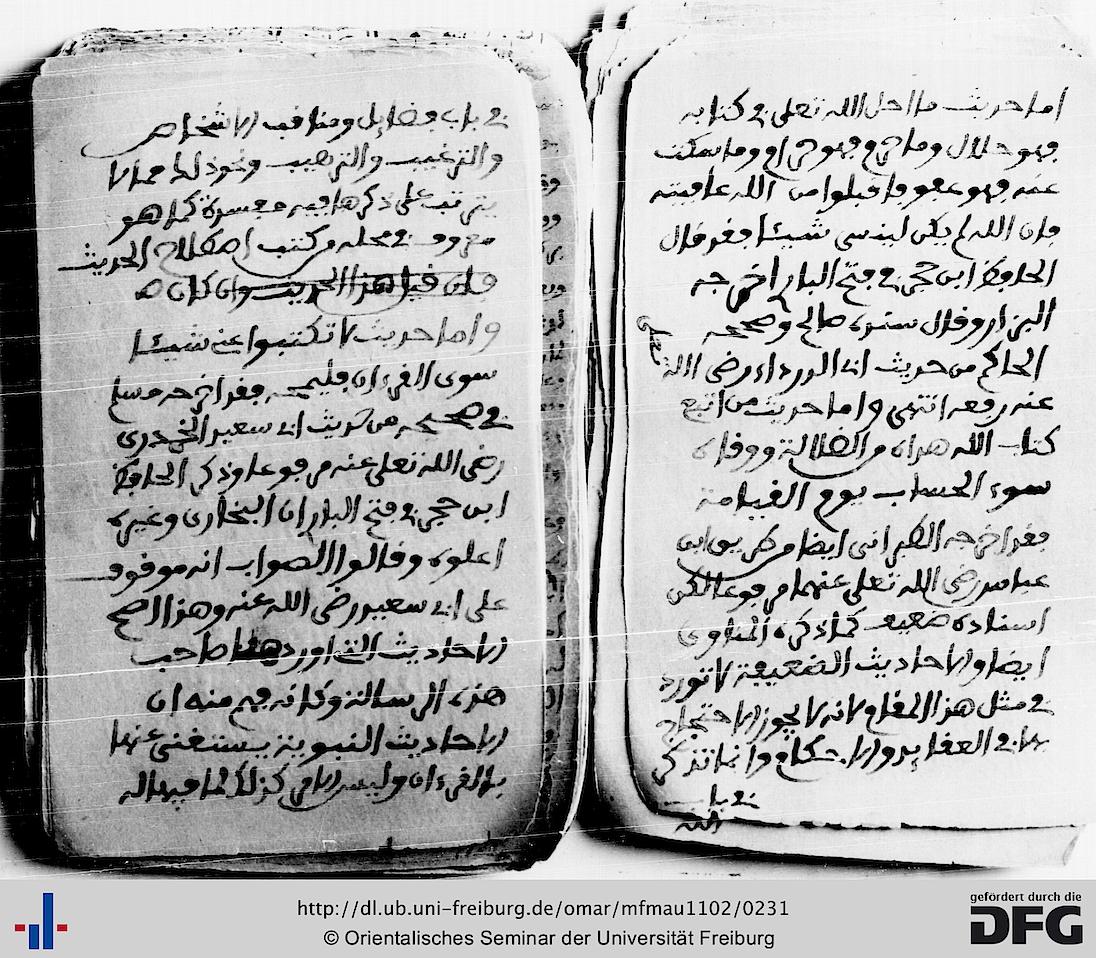 اما حديث ما احل الله تعلى في كتابه
فهو حلال وما حرم فهو حرام وما سكت
عنه فهو عفو فاقبلوا من الله عافيته
فان الله لم يكن لينسى شيئا فقد قال
الحافظ ابن حجر في فتح البار اخرجه
البزار وقال سنده صالح وصححه
الحاكم من حديث ابي الدرداء رضي الله
تعلى
عنه رفعه انتهى واما حديث من اتبع
كتاب الله هداه من الضلالة ووقاه
سوء الحساب يوم القيامة
فقد اخرجه الطبراني ايضا من طريق ابن
عباس رضي الله تعلى عنهما مرفوعا لكن
اسناده ضعيف كما ذكره المناوي
ايضا والاحاديث الضعيفة لا تورد
في مثل هذا المقام لانه لا يجوز الاحتجاج
بها في العقايد والاحكام وانما تذكر
في باب
في باب فضايل ومناقب الاشخاص
والترغيب والترهيب ونحو ذلك مما لا
يترتب على ذكرها فيه مفسدة كما هو
معروف في محله من كتب اصطلاح الحديث
فان قيل هذا الحديث وان كان
واما حديث لا تكتبوا عني شيئا
سوى القرءان فليمحه فقد اخرجه مسلم
في صحيحه من حديث ابي سعيد الخدري
رضي الله تعلى عنه مرفوعا وذكر الحافظ
ابن حجر في فتح البار ان البخاري وغيره
اعلوه وقالوا الصواب انه موقوف
على ابي سعيد رضي الله عنه وهذا اصح
الاحاديث التي اوردها صاحب
هذه الرسالة وكانه فهم منه ان
الاحاديث النبوية يستغنى عنها
بالقرءان وليس الامر كذلك لما فيها له
http://dl.ub.uni-freiburg.de/omar/mfmau1102/0231
© Orientalisches Seminar der Universität Freiburg
gefördert durch die
DFG